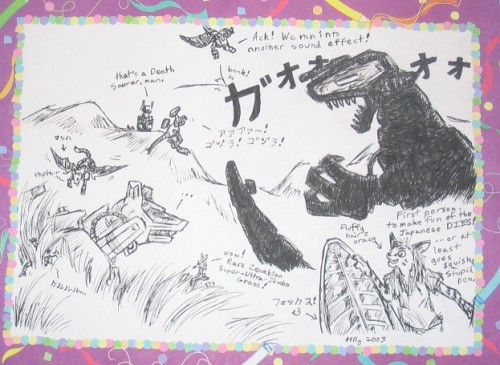 Ack! We ran into
another sound effect!
bonk!
that's a Death
Saurer, man.
ガオォ
オォ
アアアアー!
ゴジラ! ゴジラ!
...
wow!
Rare Zenebian
Super-Ultra-Jumbo
Grass!
Fluffy
hair's
crazy
フォックス!
First person
to make fun of the
Japanese DIES!
...or at
least
goes
squish.
Stupid
pen.
2003